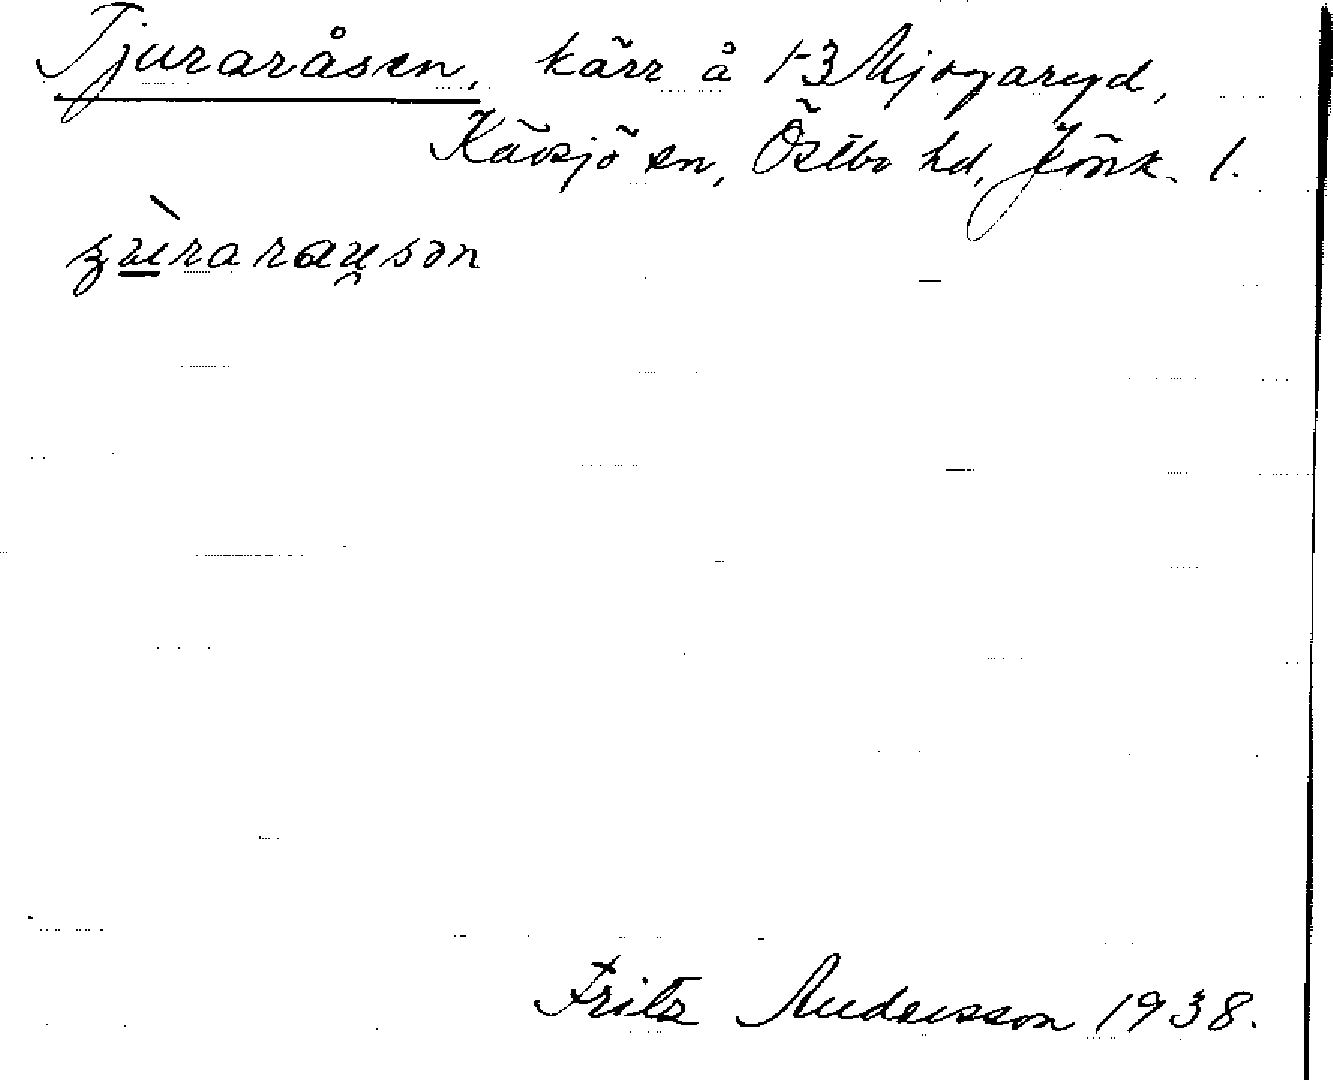 Tjuraråsen, kärr å 1-3 Mjogaryd,
Kävsjö sn, Östbo hd, Jönk. l.
ʒùrarau̯sən
Fritz Andersson 1938.